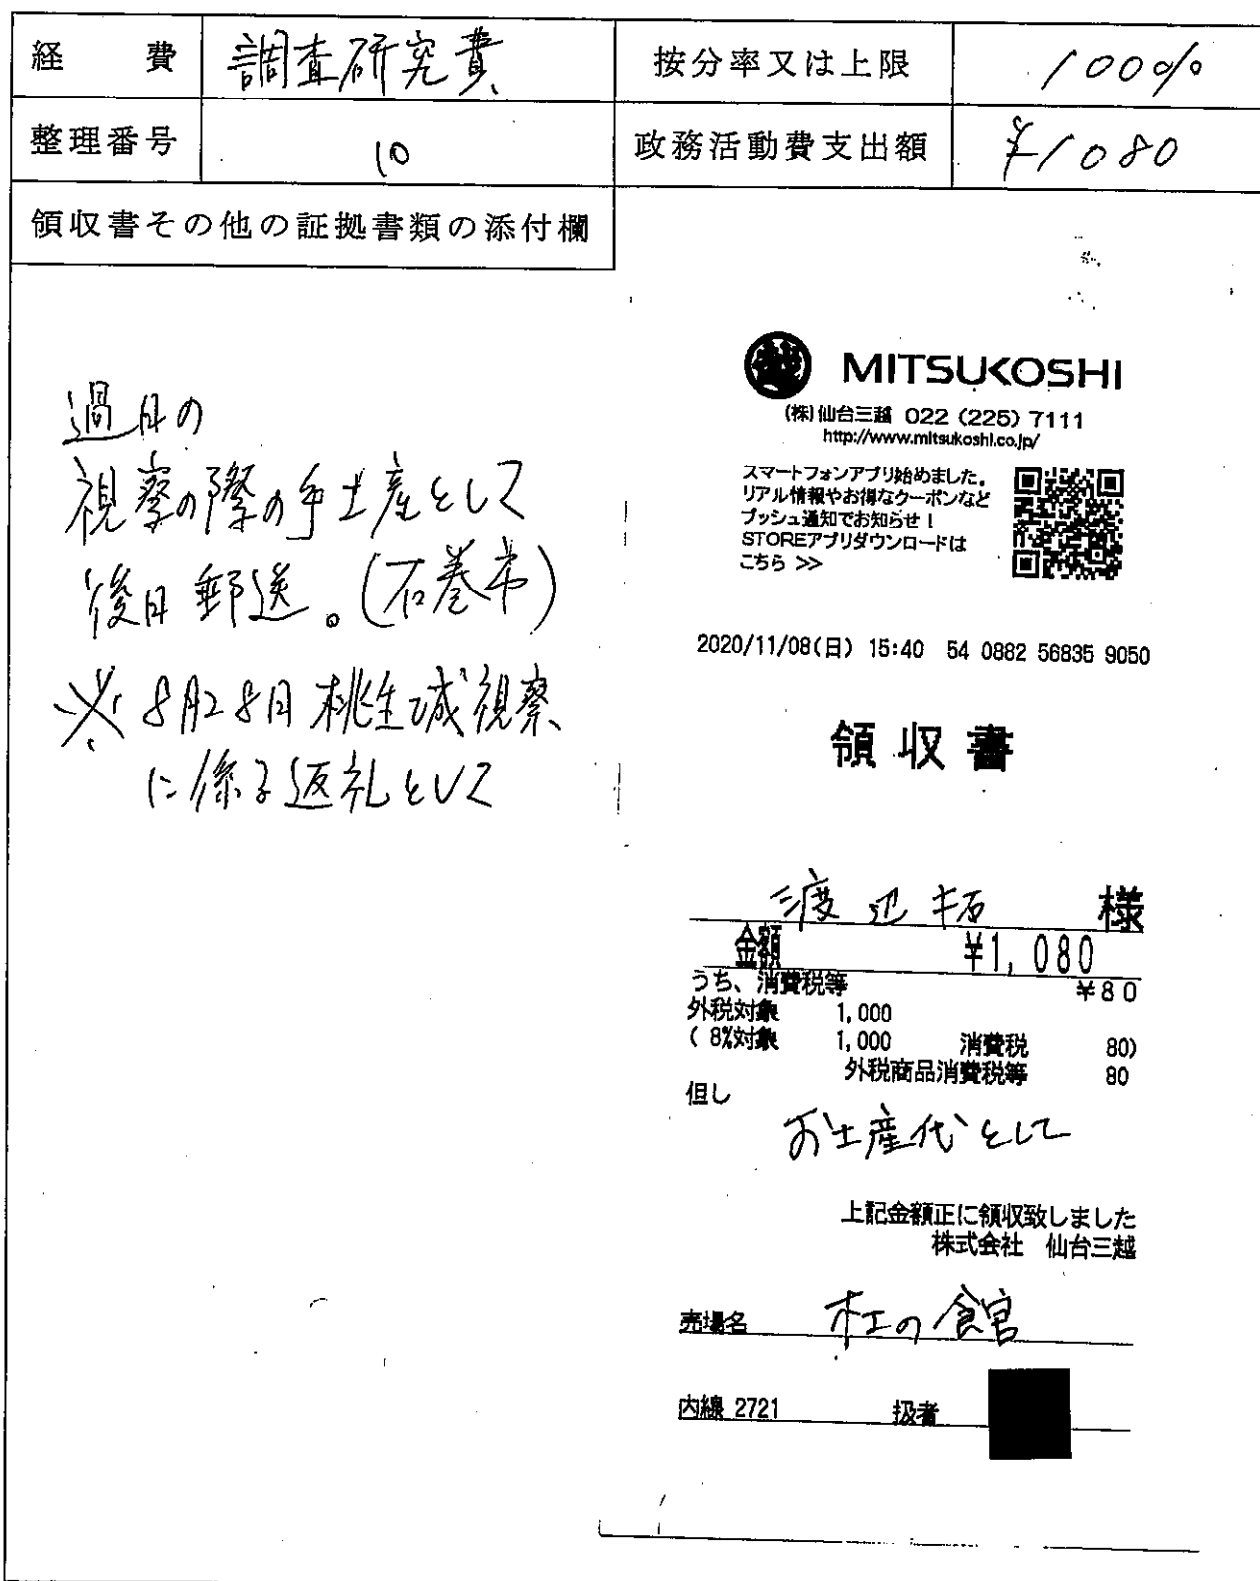 経 費 調査研究費 按分率又は上限 100%
整理番号 10 政務活動費支出額 ¥1080
領収書その他の証拠書類の添付欄
過日の
視察の際の手土産として
後日郵送。(石巻市)
※8月28日桃生城視察
に係る返礼として
MITSUKOSHI
(株)仙台三越 022 (225) 7111
http://www.mitsukoshi.co.jp/
スマートフォンアプリ始めました。
リアル情報やお得なクーポンなど
プッシュ通知でお知らせ！
STOREアプリダウンロードは
こちら >>
2020/11/08(日) 15:40 54 0882 56835 9050
領収書
渡辺拓 様
金額 ¥1,080
うち、消費税等 ¥80
外税対象 1,000
( 8%対象 1,000 消費税 80)
外税商品消費税等 80
但し
お土産代として
上記金額正に領収致しました
株式会社 仙台三越
売場名 杜の食官
内線 2721 扱者